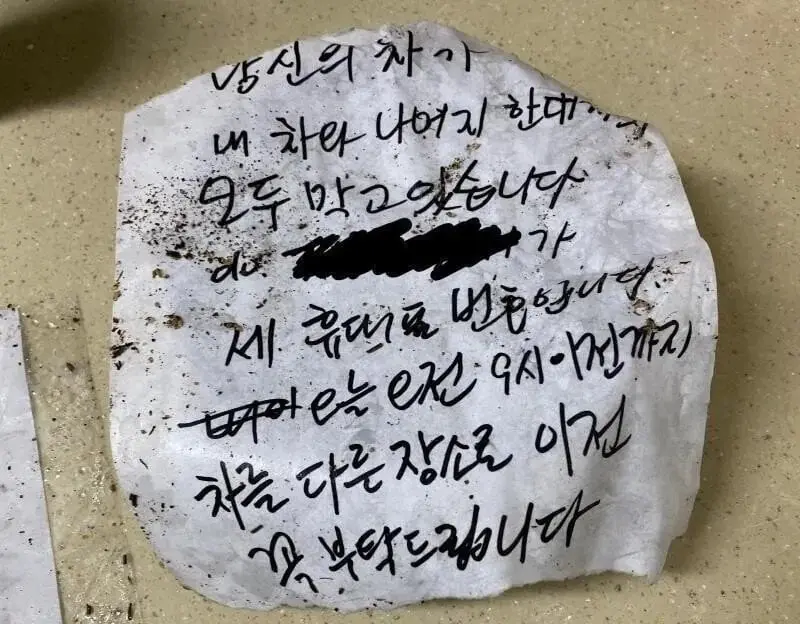 당신의 차가
내 차와 나머지 한대까지
모두 막고 있습니다
010 가
제 휴대폰 번호입니다
오늘 오전 9시 이전까지
차를 다른 장소로 이전
꼭 부탁드립니다